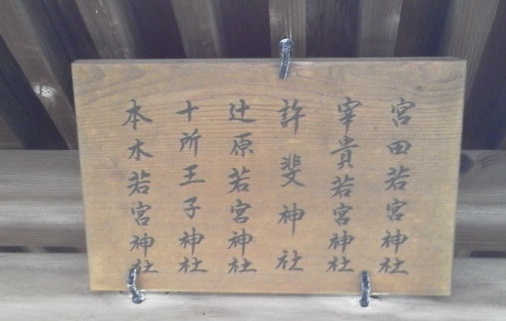 宮田若宮神社
宰貴若宮神社
許斐神社
辻原若宮神社
十所王子神社
本木若宮神社